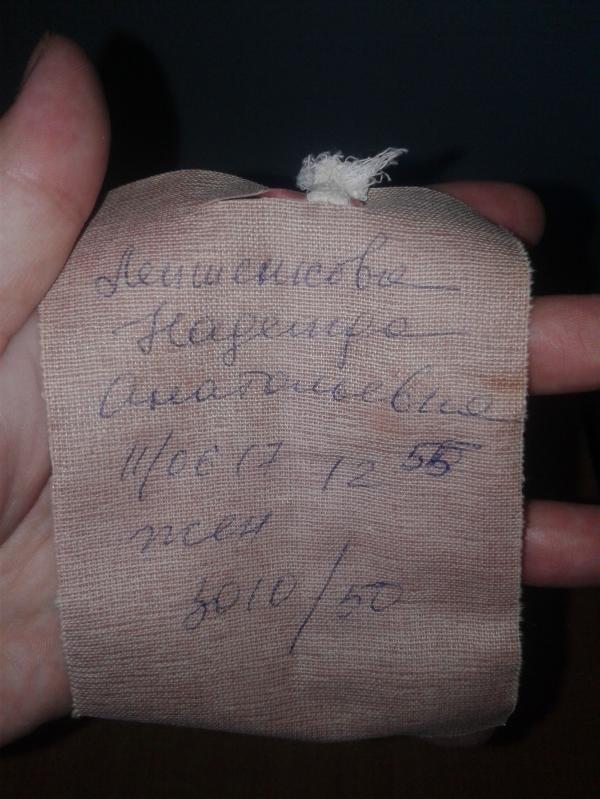 Лепшенкова
Надежда
Анатольевна
11/06 17 12 55
жен
3010/50